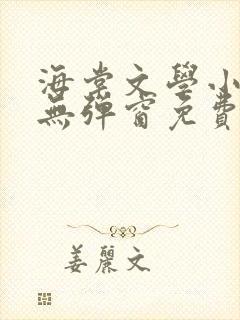 海棠文學小
無彈窗免費
姜麗文